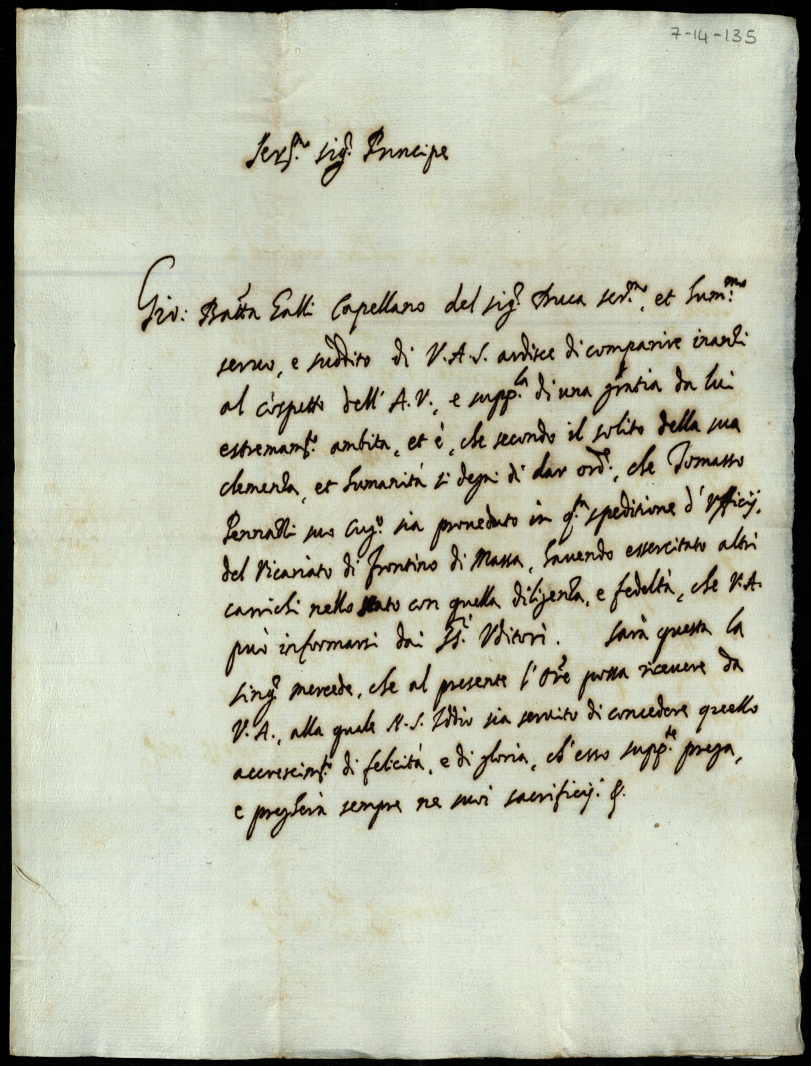 7-14-135
Ser.mo Sig.r Principe
Gio: Batta Galli Capellano del Sig.r Duca Ser.mo, et hum.mo
servo, e suddito di V.A.S. ardisce di comparire inanzi
al cospetto dell' A.V., e supp.la di una gratia da lui
estremam.te ambita, et è, che secondo il solito della sua
clemenza, et humanità si degni di dar ord.e, che Tomasso
suo Cug.o sia proveduto in q.ta speditione d' Ufficij,
del Vicariato di Frontino di Massa, havendo essercitato altri
carrichi nello stato con quella diligenza, e fedeltà, che V.A.
può informarsi dai SS.ri Uditori. Sarà questa la
sing.r mercede, che al presente l' Ore possa ricevere da
V.A., alla quale N.S. Iddio sia servito di concedere quello
accrescim.to di felicità, e di gloria, ch' esso supp.te prega,
e pregherà sempre ne suoi sacrificij. &.